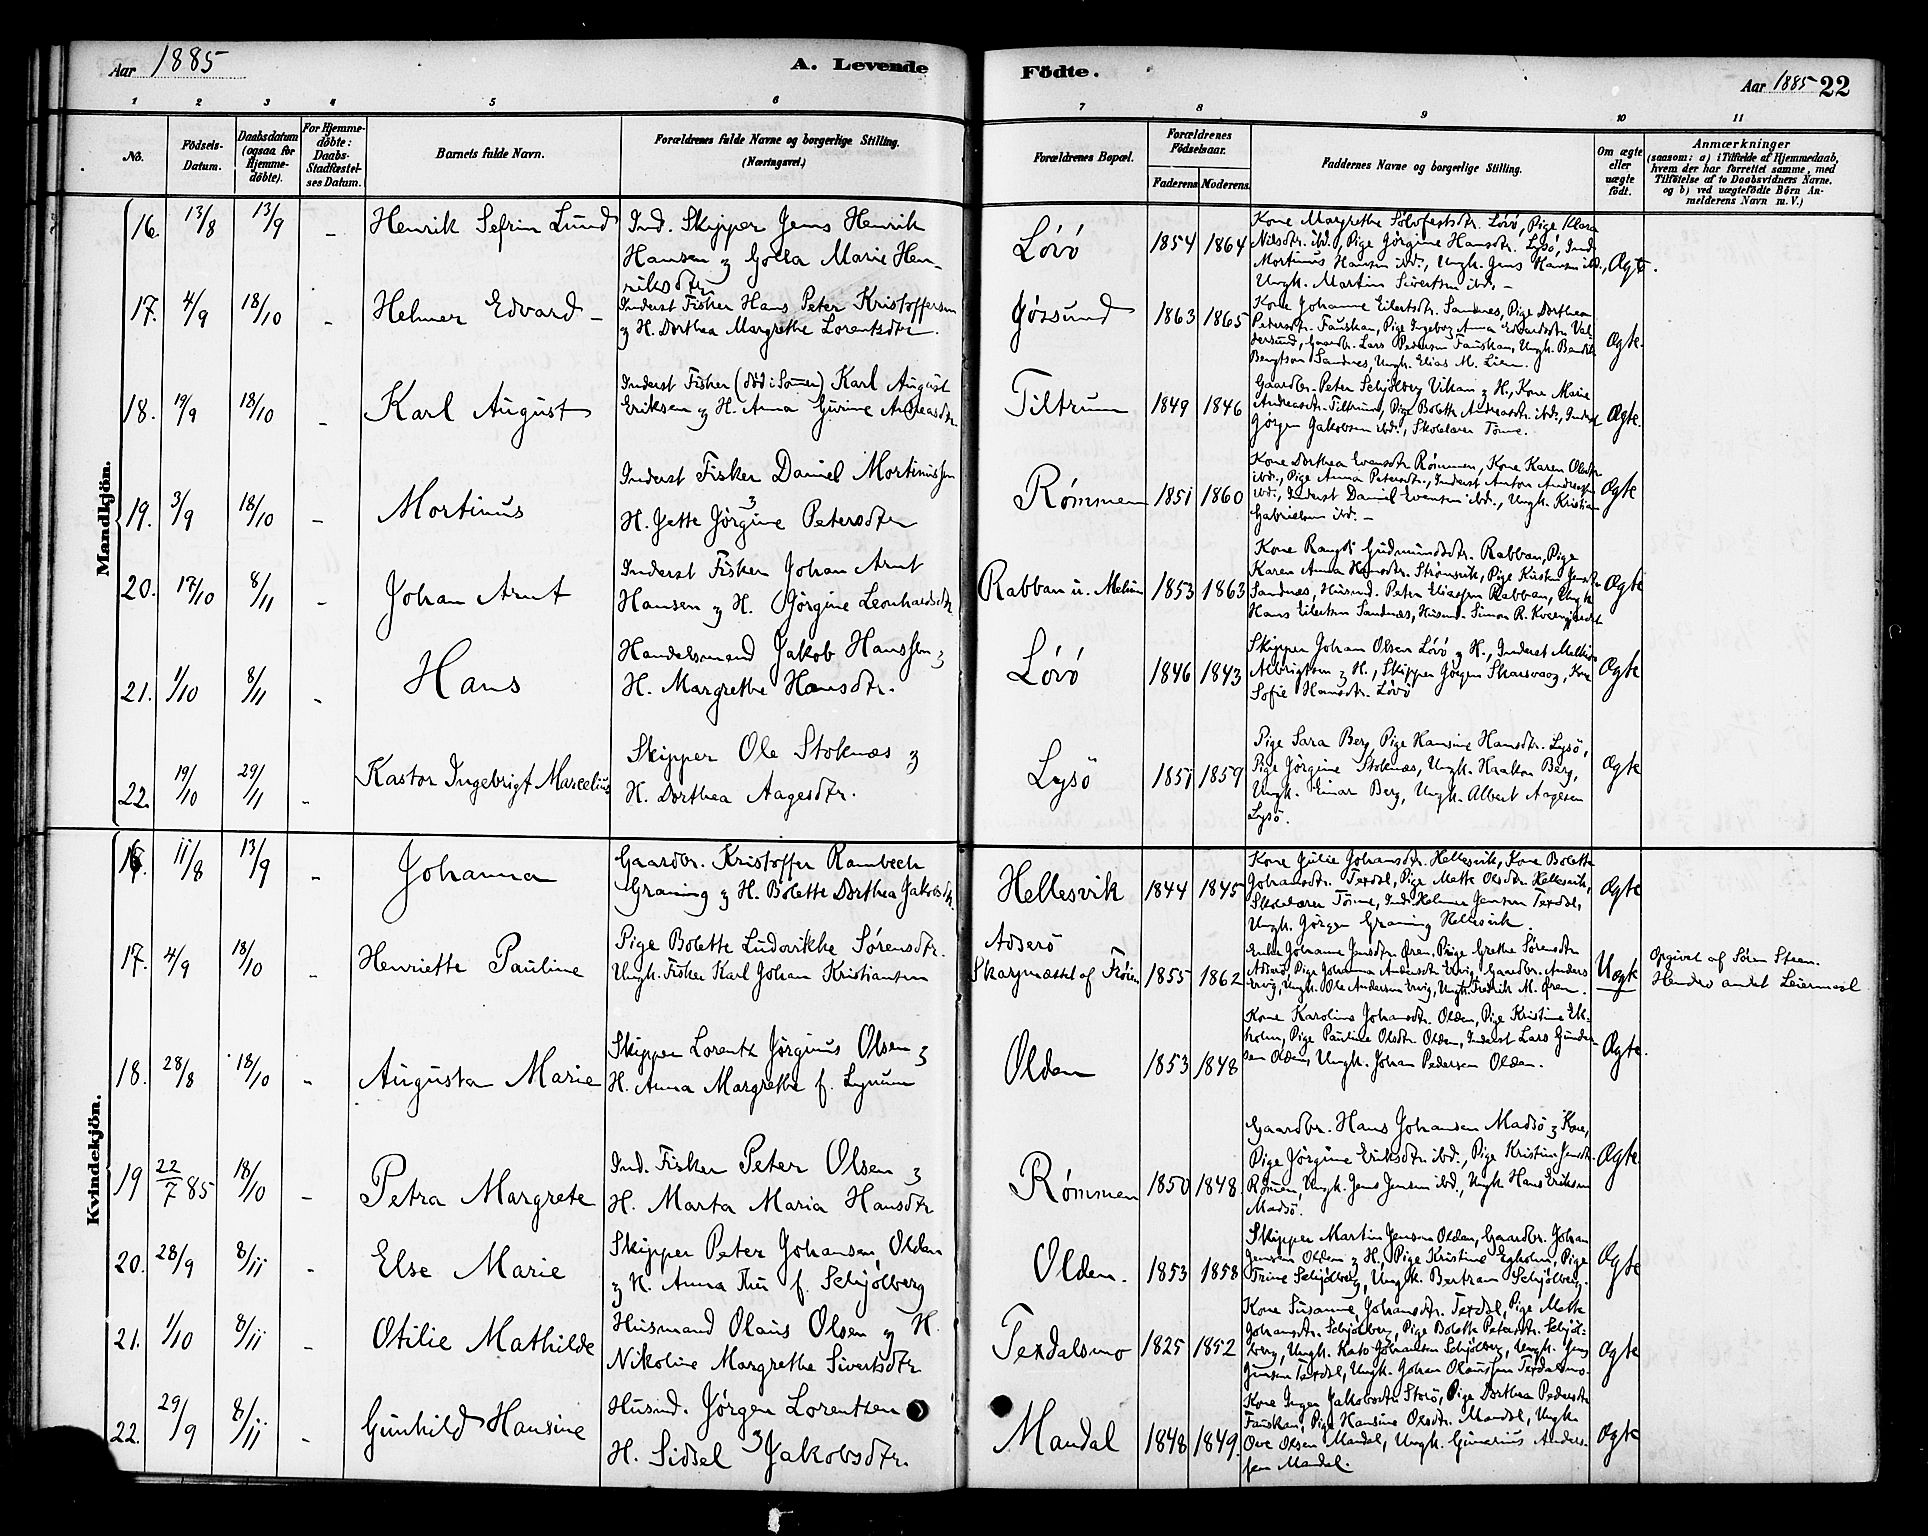 Aar 1885
A. Levende
Födte.
Aar 1885 22
1 2 3 4 5 6 7 8 9 10 11
No.
Födsels-
Datum.
Daabsdatum
(ogsaa for
Hjemme-
döbte).
For Hjemme-
döbte:
Daabs-
Stadfæstel-
ses Datum.
Barnets fulde Navn.
Forældrenes fulde Navne og borgerlige Stilling.
(Næringsvei.)
Forældrenes Bopæl.
Forældrenes
Födselsaar.
Faderens
Moderens
Faddernes Navne og borgerlige Stilling.
Om ægte
eller
uægte
födt.
Anmærkninger
(saasom: a) i Tilfælde af Hjemmedaab,
hvem der har forrettet samme, med
Tilföielse af to Daabsvidners Navne,
og b) ved uægtefödte Börn An-
melderens Navn m. V.)
Mandkjön.
16. 13/8 13/9 - Henrik Sefrin Lund
Ind. Skipper Jens Henrik
Hansen & Golla Marie Hen-
riksdtr
Lövö 1854 1864
Kone Margrethe Sölvfestsdtr. Lövö, Pige Klara
Nilsdtr. ibd., Pige Jörgine Hansdtr. Lysö, Ind.
Mortinus Hansen ibd., Ungk. Jens Hansen ibd.,
Ungk. Martin Sivertsen ibd. -
Ægte.
17. 4/9 18/10 - Helmer Edvard -
Inderst Fisker Hans Peter Kristoffersen
& H. Dorthea Margrethe Lorentsdtr
Jössund 1863 1865
Kone Johanne Eilertsdtr. Sandnes, Pige Dorthea
Petersdtr. Fauskan, Pige Ingebor Anna Edvardsdtr. Val-
dersund, Gaardb. Lars Pedersen Fauskan, Ungk. Bendik
Bengtson Sandnes, Ungk. Elias M. Lien.
Ægte.
18. 19/9 18/10 - Karl August
Inderst Fisker (död i Sommer) Karl August
Eriksen & H. Anna Gurine Andreasdtr.
Tiltrum 1849 1846
Gaardbr. Peter Schjölberg Vikan & H., Kone Marie
Andreasdtr. Tiltrum, Pige Bolette Andreasdtr. ibd., Inderst
Jörgen Jakobsen ibd., Skolelærer Tönne.
Ægte.
19. 3/9 18/10 - Mortinus
Inderst Fisker Daniel Mortinussen
&
H. Jette Jörgine Petersdtr
Römmen 1851 1860
Kone Dorthea Evensdtr Römmen, Kone Karen Olsdtr
ibd., Pige Anna Petersdtr., Inderst Anton Andreassen
ibd., Inderst Daniel Evensen ibd., Ungk. Kristian
Gabrielsen ibd. -
Ægte
20. 17/10 8/11 - Johan Arnt
Inderst Fisker Johan Arnt
Hansen & H. Jörgine Leonhardsdtr
Rabban u. Melum 1853 1863
Kone Gudmundsdtr. Rabban, Pige
Karen Anna Hansdtr. Strömsvik, Pige Kirsten Jensdtr
Sandnæs, Husmd. Peter Eliassen Rabban, Ungk.
Hans Eilertsen Sandnæs, Husmd. Simon R.
Ægte
21. 1/10 8/11 - Hans
Handelsmand Jakob Hanssen &
H. Margrethe Hansdtr.
Lövö 1846 1843
Skipper Johan Olsen Lövö & H., Inderst
Albrigtsen & H., Skipper Jörgen Skarsvaag, Kone
Sofie Hansdtr. Lövö
Ægte
22. 19/10 29/11 - Kastor Ingebrigt Marcelius
Skipper Ole Stoknæs &
H. Dorthea Aagesdtr.
Lysö 1851 1859
Pige Sara Berg, Pige Hansine Hansdtr. Lysö,
Pige Jörgine Stoknæs, Ungk. Haakon Berg,
Ungk. Einar Berg, Ungk. Albert Aagesen
Lysö.
Ægte
Kvindekjön.
16. 11/8 13/9 - Johanna
Gaardbr. Kristoffer Rambech
Graning & H. Bolette Dorthea Jakobsdtr.
Hellesvik 1844 1845
Kone Julie Johansdtr. Hellesvik, Kone Bolette
Johansdtr. Texdal, Pige Mette Olsdtr. Hellesvik,
Skolelærer Tönne, Ind. Helmer Jensen Texdal,
Ungk. Jörgen Graning Hellesvik.
Ægte
17. 4/9 18/10 - Henriette Pauline
Pige Bolette Ludovikke Sörensdtr.
Ungk. Fisker Karl Johan Kristiansen
Asserö
Skarpnæsset af Fröien 1855 1862
Enke Johanne Jensdtr. Ören, Pige Grethe Sörensdtr
Asserö, Pige Johanna Andersdtr Ervig, Gaardbr. Anders
Ervig, Ungk. Ole Andersen Ervig, Ungk. Fredrik M. Ören.
Uægte
Opgivet af Sören Steen.
Hendes andet Leiermaal
18. 28/8 18/10 - Augusta Marie
Skipper Lorentz Jörginus Olsen &
H. Anna Margrethe f. Lynum
Olden 1853 1848
Kone Karoline Johansdtr. Olden, Pige Kristine Ek-
holm, Pige Pauline Olsdtr. Olden, Inderst Lars Gunder-
sen Olden, Ungk. Johan Pedersen Olden.
Ægte.
19 22/7 85 18/10 - Petra Margrete
Ind. Fisker Peter Olsen &
H. Marta Maria Hansdtr
Römmen 1850 1848
Gaardbr. Hans Johansen Madsö & Kone,
Pige Jörgine Eriksdtr. ibd., Pige Kristine Jensdtr.
Römmen, Ungk. Jens Jensen ibd., Ungk. Hans Eriksen
Madsö.
Ægte.
20. 28/9 8/11 - Else Marie
Skipper Peter Johansen Olden
& H. Anna f. Schjölberg
Olden. 1853 1858
Skipper Martin Jensen Olden, Gaardbr. Johan
Jensen Olden & H., Pige Kristine Egholm, Pige
Trine Schjölberg, Ungk. Bertram Schjölberg.
Ægte
21. 1/10 8/11 - Otilie Mathilde
Husmand Olaus Olsen & H.
Nikoline Margrethe Sivertsdtr
Texdalsmo 1825 1852
Kone Susanne Johansdtr. Texdal, Pige Mette
Johansdtr. Schjölberg, Pige Bolette Petersdtr. Schjöl-
berg, Ungk. Kato Johansen Schjölberg, Ungk. Jens
Jensen Texdal, Ungk. Johan Olaussen Texdalsmo.
Ægte
22. 29/9 8/11 - Gunhild Hansine
Husmd. Jörgen Lorentzen
&
H. Sidsel Jakobsdtr.
Mandal 1848 1849.
Kone Inger Jakobsdtr Storö, Pige Dorthea Pedersdtr
Fauskan, Pige Hansine Olsdtr. Mandal, Ungk.
Ove Olsen Mandal, Ungk. Gunerius Anders-
sen Mandal.
Ægte